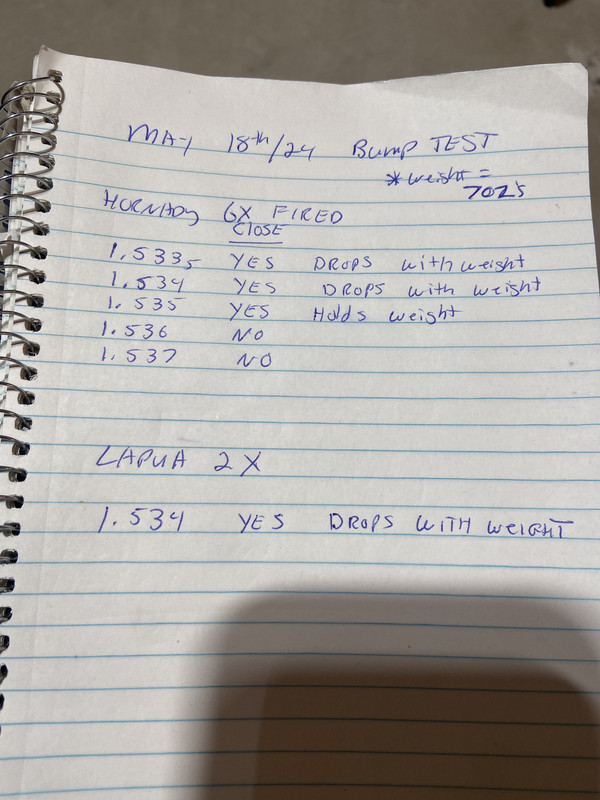 MAY 18th/24 Bump TEST
* weight =
702's
HORNADY 6X FIRED
CLOSE
1.5335 YES DROPS with weight
1.534 YES DROPS with weight
1.535 YES Holds weight
1.536 NO
1.537 NO
LAPUA 2X
1.534 YES DROPS WITH WEIGHT